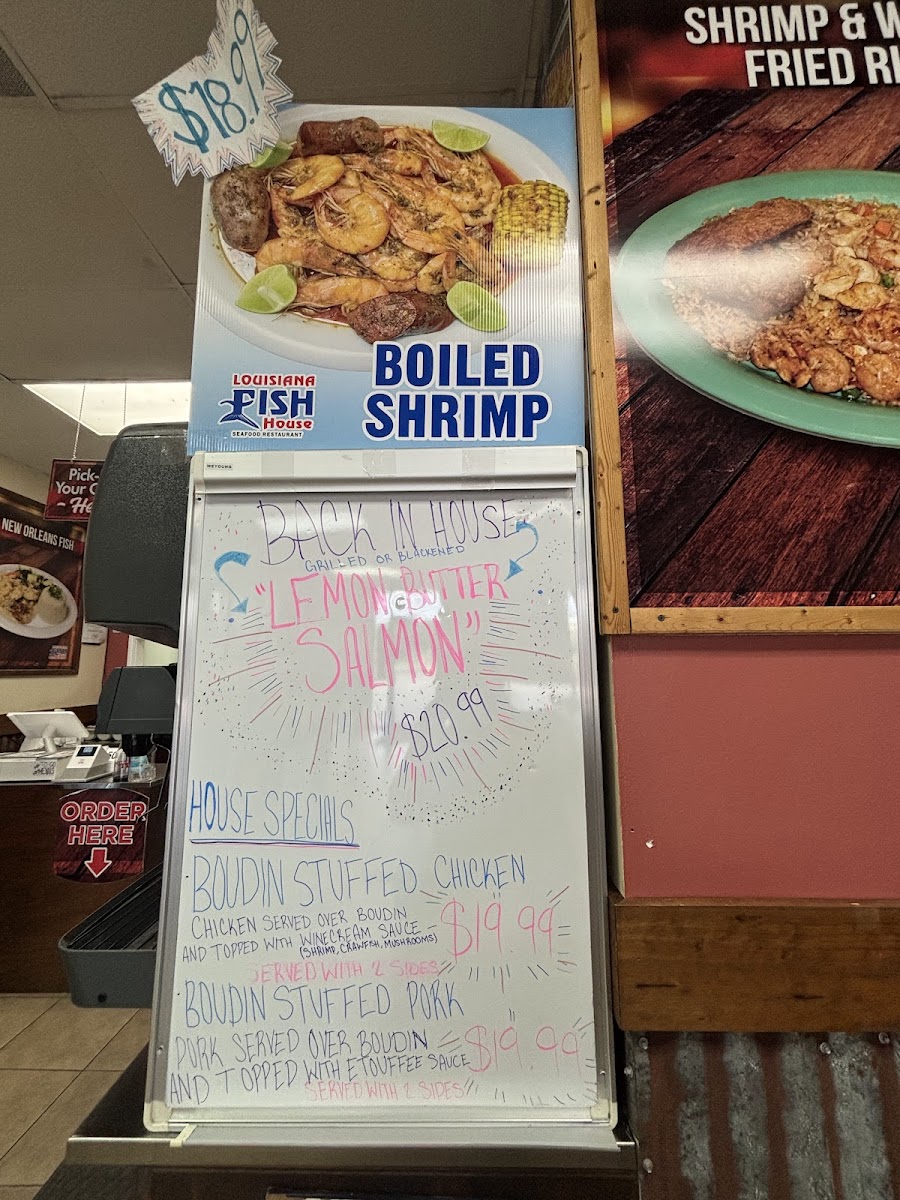 $18.99
SHRIMP & W
FRIED RI
BOILED
SHRIMP
LOUISIANA
FISH
House
SEAFOOD RESTAURANT
Pick-
Your C
NEW ORLEANS FISH
ORDER
HERE
BACK IN HOUSE
GRILLED OR BLACKENED
"LEMON BUTTER
SALMON"
$20.99
HOUSE SPECIALS
BOUDIN STUFFED CHICKEN
CHICKEN SERVED OVER BOUDIN
AND TOPPED WITH WINECREAM SAUCE
(SHRIMP, CRAWFISH, MUSHROOMS)
$19.99
SERVED WITH 2 SIDES
BOUDIN STUFFED PORK
PORK SERVED OVER BOUDIN
AND TOPPED WITH ETOUFFEE SAUCE
$19.99
SERVED WITH 2 SIDES